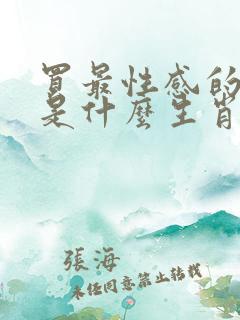 買最性感的
是什麼生肖
張海
未经同意禁止转载